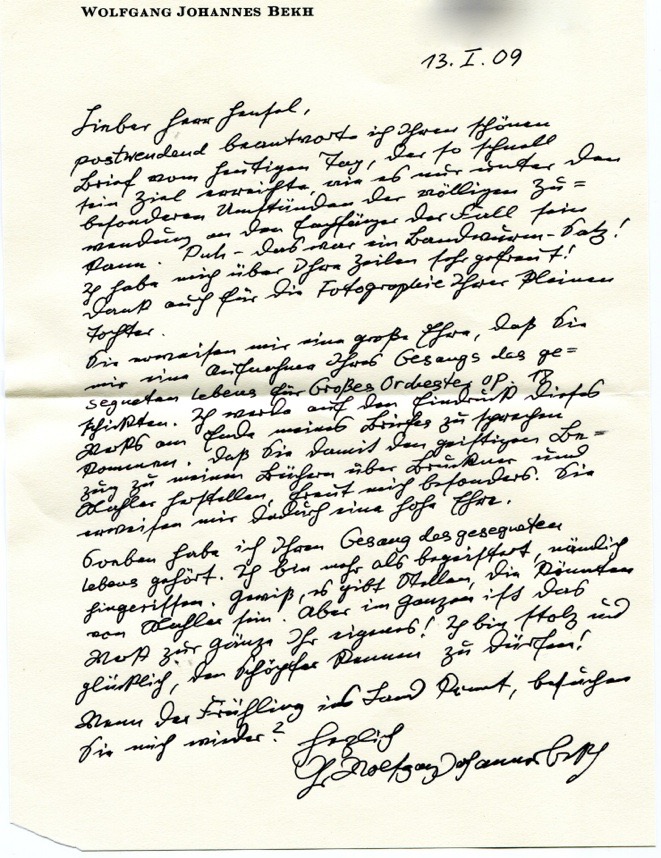 WOLFGANG JOHANNES BEKH
13. I. 09
Lieber Herr Hensel,
postwendend beantworte ich Ihren schönen
Brief vom heutigen Tag, der so schnell
sein Ziel erreichte, wie es nur unter den
besonderen Umständen der völligen Zu=
wendung an den Empfänger der Fall sein
kann. Puh – das war ein Bandwurm-Satz!
Ich habe mich über Ihre Zeilen sehr gefreut!
Dank auch für die Fotographie Ihrer kleinen
Tochter.
Sie erweisen mir eine große Ehre, daß Sie
mir eine Aufnahme Ihres Gesangs des ge=
segneten Lebens für Großes Orchester, op. 18
schickten. Ich werde auf den Eindruck dieses
Werks am Ende meines Briefes zu sprechen
kommen. Daß Sie damit den geistigen Be=
zug zu meinen Büchern über Bruckner und
Mahler herstellen, freut mich besonders. Sie
erweisen mir dadurch eine hohe Ehre.
Soeben habe ich Ihren Gesang des gesegneten
Lebens gehört. Ich bin mehr als begeistert, nämlich
hingerissen. Gewiß, es gibt Stellen, die könnten
von Mahler sein. Aber im ganzen ist das
Werk zur Gänze Ihr eigenes! Ich bin stolz und
glücklich, den Schöpfer kennen zu dürfen!
Wenn der Frühling ins Land kommt, besuchen
Sie mich wieder? Herzlich
Ihr Wolfgang Johannes Bekh